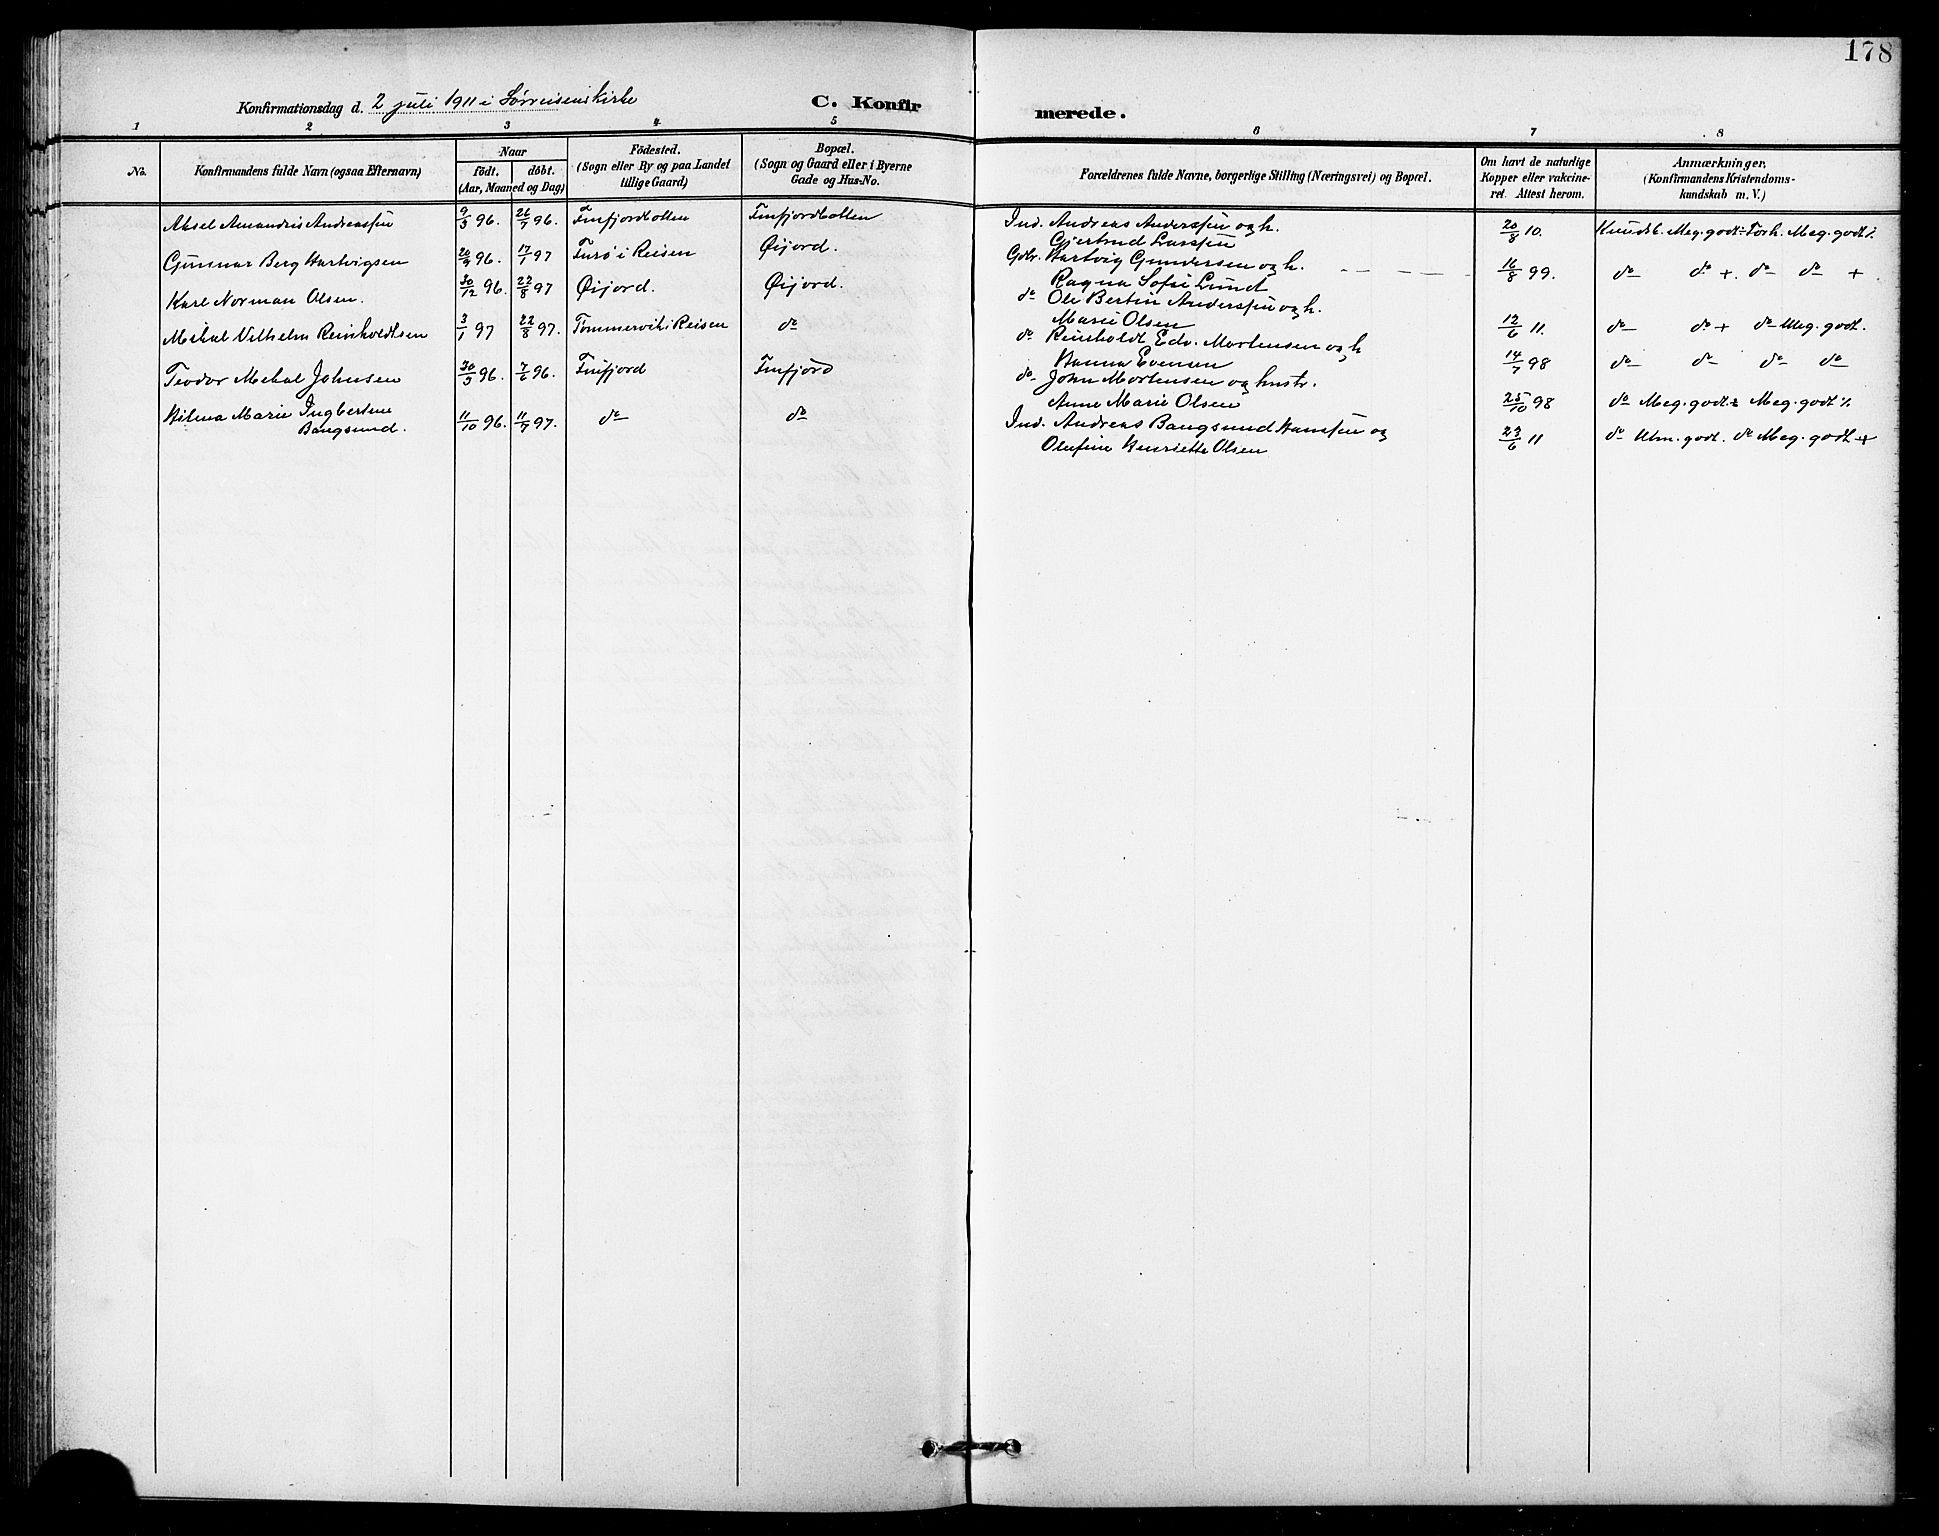 178
Konfirmationsdag d. 2 juli 1911 i Sørreisens kirke
C. Konfirmerede.
1 2 3 4 5 6 7 8
No.
Konfirmandens fulde Navn (ogsaa Efternavn)
Naar
födt. døbt.
(Aar, Maaned og Dag)
Födested.
(Sogn eller By og paa Landet
tillige Gaard)
Bopæl.
(Sogn og Gaard eller i Byerne
Gade og Hus-No.
Forældrenes fulde Navne, borgerlige Stilling (Næringsvei) og Bopæl.
Om havt de naturlige
Kopper eller vakcine-
ret. Attest herom.
Anmærkninger,
(Konfirmandens Kristendoms-
kundskab m. V.)
Aksel Amandris Andreassen 9/3 96. 26/7 96. Finfjordbotten Finfjordbotten Ind. Andreas Anderssen og h. 20/8 10. Kundsk. Meg. godt ÷ Forh. Meg. godt %
Gjertrud Larssen
Gunnar Berg Hartvigsen 20/9 96. 17/1 97 Furø i Reisen Øijord. Gdbr. Hartvig Gundersen og h. 16/8 99. do do + do do +
Ragna Sofie Lund
Karl Norman Olsen. 30/12 96. 22/8 97 Øijord. Øijord. do Ole Bertin Anderssen og h. 12/6 11. do do + do Meg. godt.
Marie Olsen
Mekal Vilhelm Reinholdtsen 3/1 97 22/8 97. Tømmervik i Reisen do do Reinholdt Edv. Mortensen og h 14/7 98 do do do do
Hanna Evensen
Teodor Mekal Johnsen 30/3 96. 7/6 96. Finfjord Finfjord do John Mortensen og hustr. 25/10 98 do Meg. godt ± Meg. godt %
Anne Marie Olsen
Hilma Marie Ingbertine 11/10 96. 11/7 97. do do Ind. Andreas Bangsund Hanssen og 23/6 11 do Udm. godt. do Meg. godt +
Bangsund. Olufine Henriette Olsen